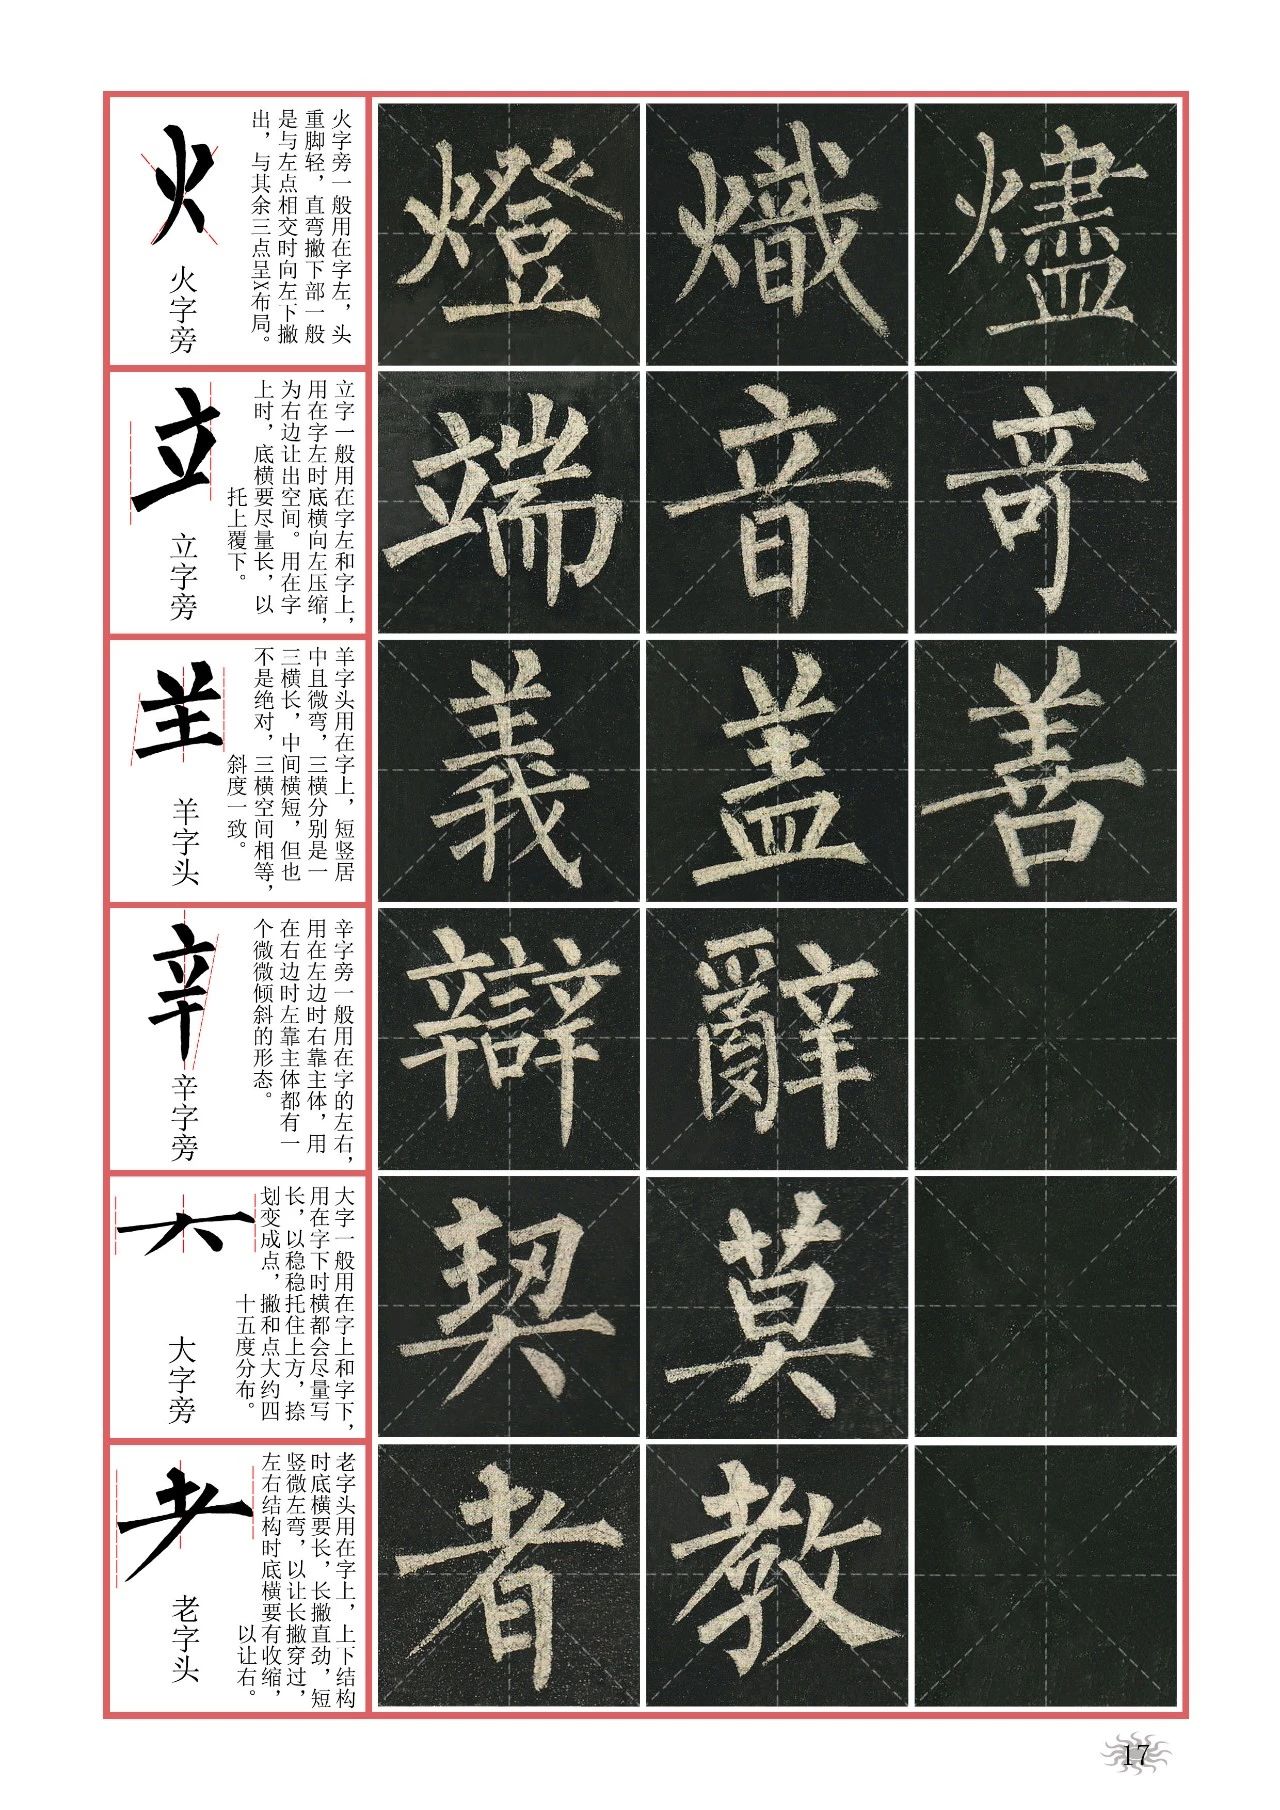 火
火字旁
火字旁一般用在字左，头
重脚轻，直弯撇下部一般
是与左点相交时向左下撇
出，与其余三点呈X布局。
燈 熾 燼
立
立字旁
立字一般用在字左和字上，
用在字左时底横向左压缩，
为右边让出空间。用在字
上时，底横要尽量长，以
托上覆下。
端 音 奇
羊字头
羊字头用在字上，短竖居
中且微弯，三横分别是一
三横长，中间横短，但也
不是绝对，三横空间相等，
斜度一致。
義 盖 善
辛
辛字旁
辛字旁一般用在字的左右，
用在左边时右靠主体，用
在右边时左靠主体都有一
个微微倾斜的形态。
辯 辭
大字旁
大字一般用在字上和字下，
用在字下时横都会尽量写
长，以稳稳托住上方，捺
划变成点，撇和点大约四
十五度分布。
契 莫
耂
老字头
老字头用在字上，上下结构
时底横要长，长撇直劲，短
竖微左弯，以让长撇穿过，
左右结构时底横要有收缩，
以让右。
者 教
17